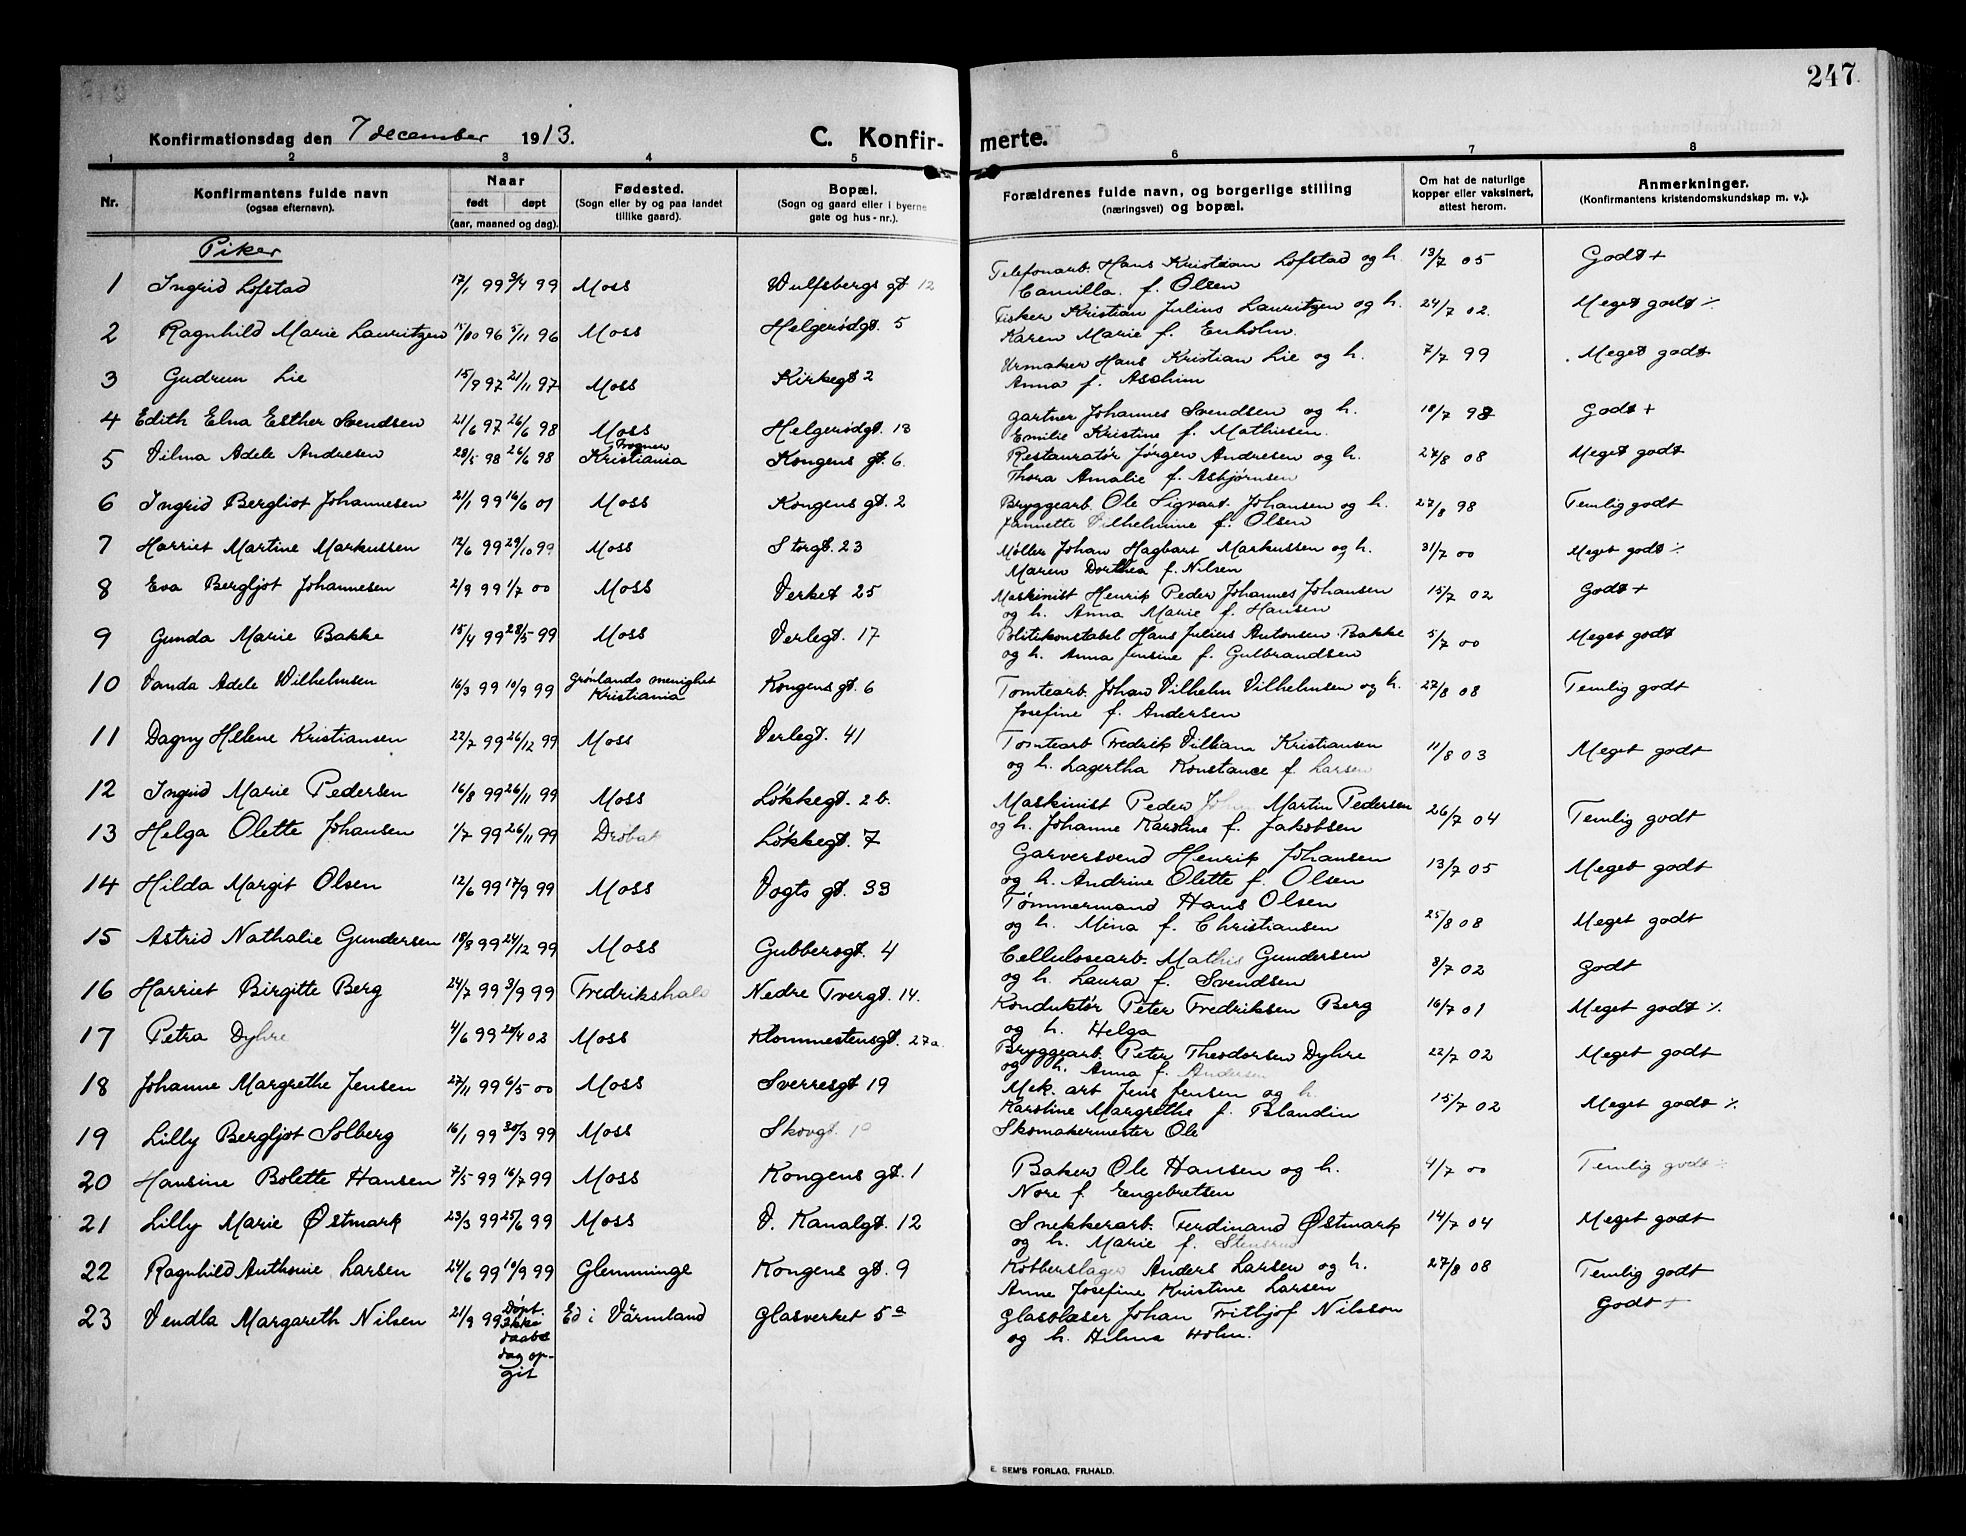 247.
Konfirmationsdag den 7 december 1913.
C. Konfir-merte.
1 2 3 4 5 6 7 8
Nr.
Konfirmantens fulde navn
(ogsaa efternavn).
Naar
født døpt
(aar, maaned og dag).
Fødested.
(Sogn eller by og paa landet
tillike gaard).
Bopæl.
(Sogn og gaard eller i byerne
gate og hus-nr.).
Forældrenes fulde navn, og borgerlige stilling
(næringsvei) og bopæl.
Om hat de naturlige
kopper eller vaksinert,
attest herom.
Anmerkninger.
(Konfirmantens kristendomskundskap m. v.).
Piker
1 Ingrid Løfstad 17/1 99 3/4 99 Moss Wulfsbergs gt 12 Telefonarb. Hans Kristian Løfstad og h. 13/7 05 Godt +
Camilla f. Olsen
2 Ragnhild Marie Lauritzen 15/10 96 5/11 96 Moss Helgerødgt. 5 Fisker Kristian Julius Lauritzen og h. 24/7 02. Meget godt ⁒
Karen Marie f. Enholm.
3 Gudrun Lie 15/9 97 21/11 97 Moss Kirkegt 2 Urmaker Hans Kristian Lie og h. 7/7 99 Meget godt
Anna f. Aschim
4 Edith Elna Esther Svendsen 21/6 97 26/6 98 Moss Helgerødgt. 13 gartner Johannes Svendsen og h. 18/7 98 Godt +
Emilie Kristine f. Mathiesen.
5 Vilma Adele Andresen 28/5 98 26/6 98 Frogner
Kristiania Kongens gt. 6. Restauratør Jørgen Andresen og h. 27/8 08 Meget godt
Thora Amalie f. Asbjørnsen
6 Ingrid Bergliot Johannesen 21/1 99 16/6 01 Moss Kongens gt. 2 Bryggearb. Ole Sigvart Johansen og h. 27/8 98 Temlig godt
Jannette Vilhelmine f. Olsen
7 Harriet Martine Markussen 12/6 99 29/10 99 Moss Storgt. 23 Møller Johan Hagbart Markussen og h. 31/7 00 Meget godt ⁒
Maren Dorthea f. Nilsen
8 Eva Bergljot Johannesen 2/9 99 1/7 00 Moss Verket 25 Maskinist Henrik Peder Johannes Johansen 15/7 02 Godt +
og h. Anna Marie f. Hansen
9 Gunda Marie Bakke 15/4 99 28/5 99 Moss Verlegt. 17 Politikonstabel Hans Julius Antonsen Bakke 5/7 00 Meget godt
og h. Anna Jensine f. Gulbrandsen
10 Vanda Adele Wilhelmsen 16/3 99 10/9 99 Grønlands menighet
Kristiania Kongens gt. 6 Tomtearb. Johan Vilhelm Vilhelmsen og h. 27/8 08 Temlig godt
Josefine f. Andersen
11 Dagny Helene Kristiansen 22/7 99 26/12 99 Moss Verlegt. 41 Tomtearb Fredrik Villiam Kristiansen 11/8 03 Meget godt
og h. Lagertha Konstance f. Larsen
12 Ingrid Marie Pedersen 16/8 99 26/11 99 Moss Løkkegt. 2 b. Maskinist Peder Johan Martin Pedersen 26/7 04 Temlig godt
og h. Johanne Karoline f. Jakobsen
13 Helga Olette Johansen 1/7 99 26/11 99 Drøbak Løkkegt. 7 Garversvend Henrik Johansen 13/7 05 Meget godt
og h. Andrine Olette f. Olsen
14 Hilda Margit Olsen 12/6 99 17/9 99 Moss Vogts gt. 33 Tømmermand Hans Olsen 25/8 08 Meget godt
og h. Mina f. Christiansen
15 Astrid Nathalie Gundersen 18/8 99 24/12 99 Moss Gubbersgt. 4 Cellulosearb. Mathis Gundersen 8/7 02 Godt
og h. Laura f. Svendsen
16 Harriet Birgitte Berg 24/7 99 3/9 99 Fredrikshald Nedre Tvergt. 14. Konduktør Peter Fredriksen Berg 16/7 01 Meget godt ⁒
og h. Helga
17 Petra Dyhre 4/6 99 20/4 02 Moss Klommestensgt. 27a. Bryggearb. Peter Theodorsen Dyhre 22/7 02 Meget godt
og h. Anna f. Andersen
18 Johanne Margrethe Jensen 27/11 99 6/5 00 Moss Sverresgt 19 Mek. arb Jens Jensen og h. 15/7 02 Meget godt ⁒
Karoline Margrethe f. Blandin
19 Lilly Bergljot Solberg 16/1 99 30/3 99 Moss Skovgt. 19 Skomakermester Ole
20 Hansine Bolette Hansen 7/5 99 16/7 99 Moss Kongens gt. 1 Baker Ole Hansen og h. 4/7 00 Temlig godt ⁒
Nore f. Engebretsen
21 Lilly Marie Østmark 23/3 99 25/6 99 Moss V. Kanalgt. 12 Snekkerarb. Ferdinand Østmark 14/7 04 Meget godt
og h. Marie f. Stensrud
22 Ragnhild Anthonie Larsen 24/6 99 10/9 99 Glemminge Kongens gt. 9 Kobberslager Anders Larsen og h. 27/8 08 Temlig godt
Anne Josefine Kristine Larsen
23 Vendla Margareth Nilsen 21/9 99 Døpt.
Ikke
daabs
dag op-
git Ed i Värmland Glasverket 5a Glasblæser Johan Fritjof Nilsson Godt +
og h. Hilma Holm.
E. SEM'S FORLAG, FR.HALD.